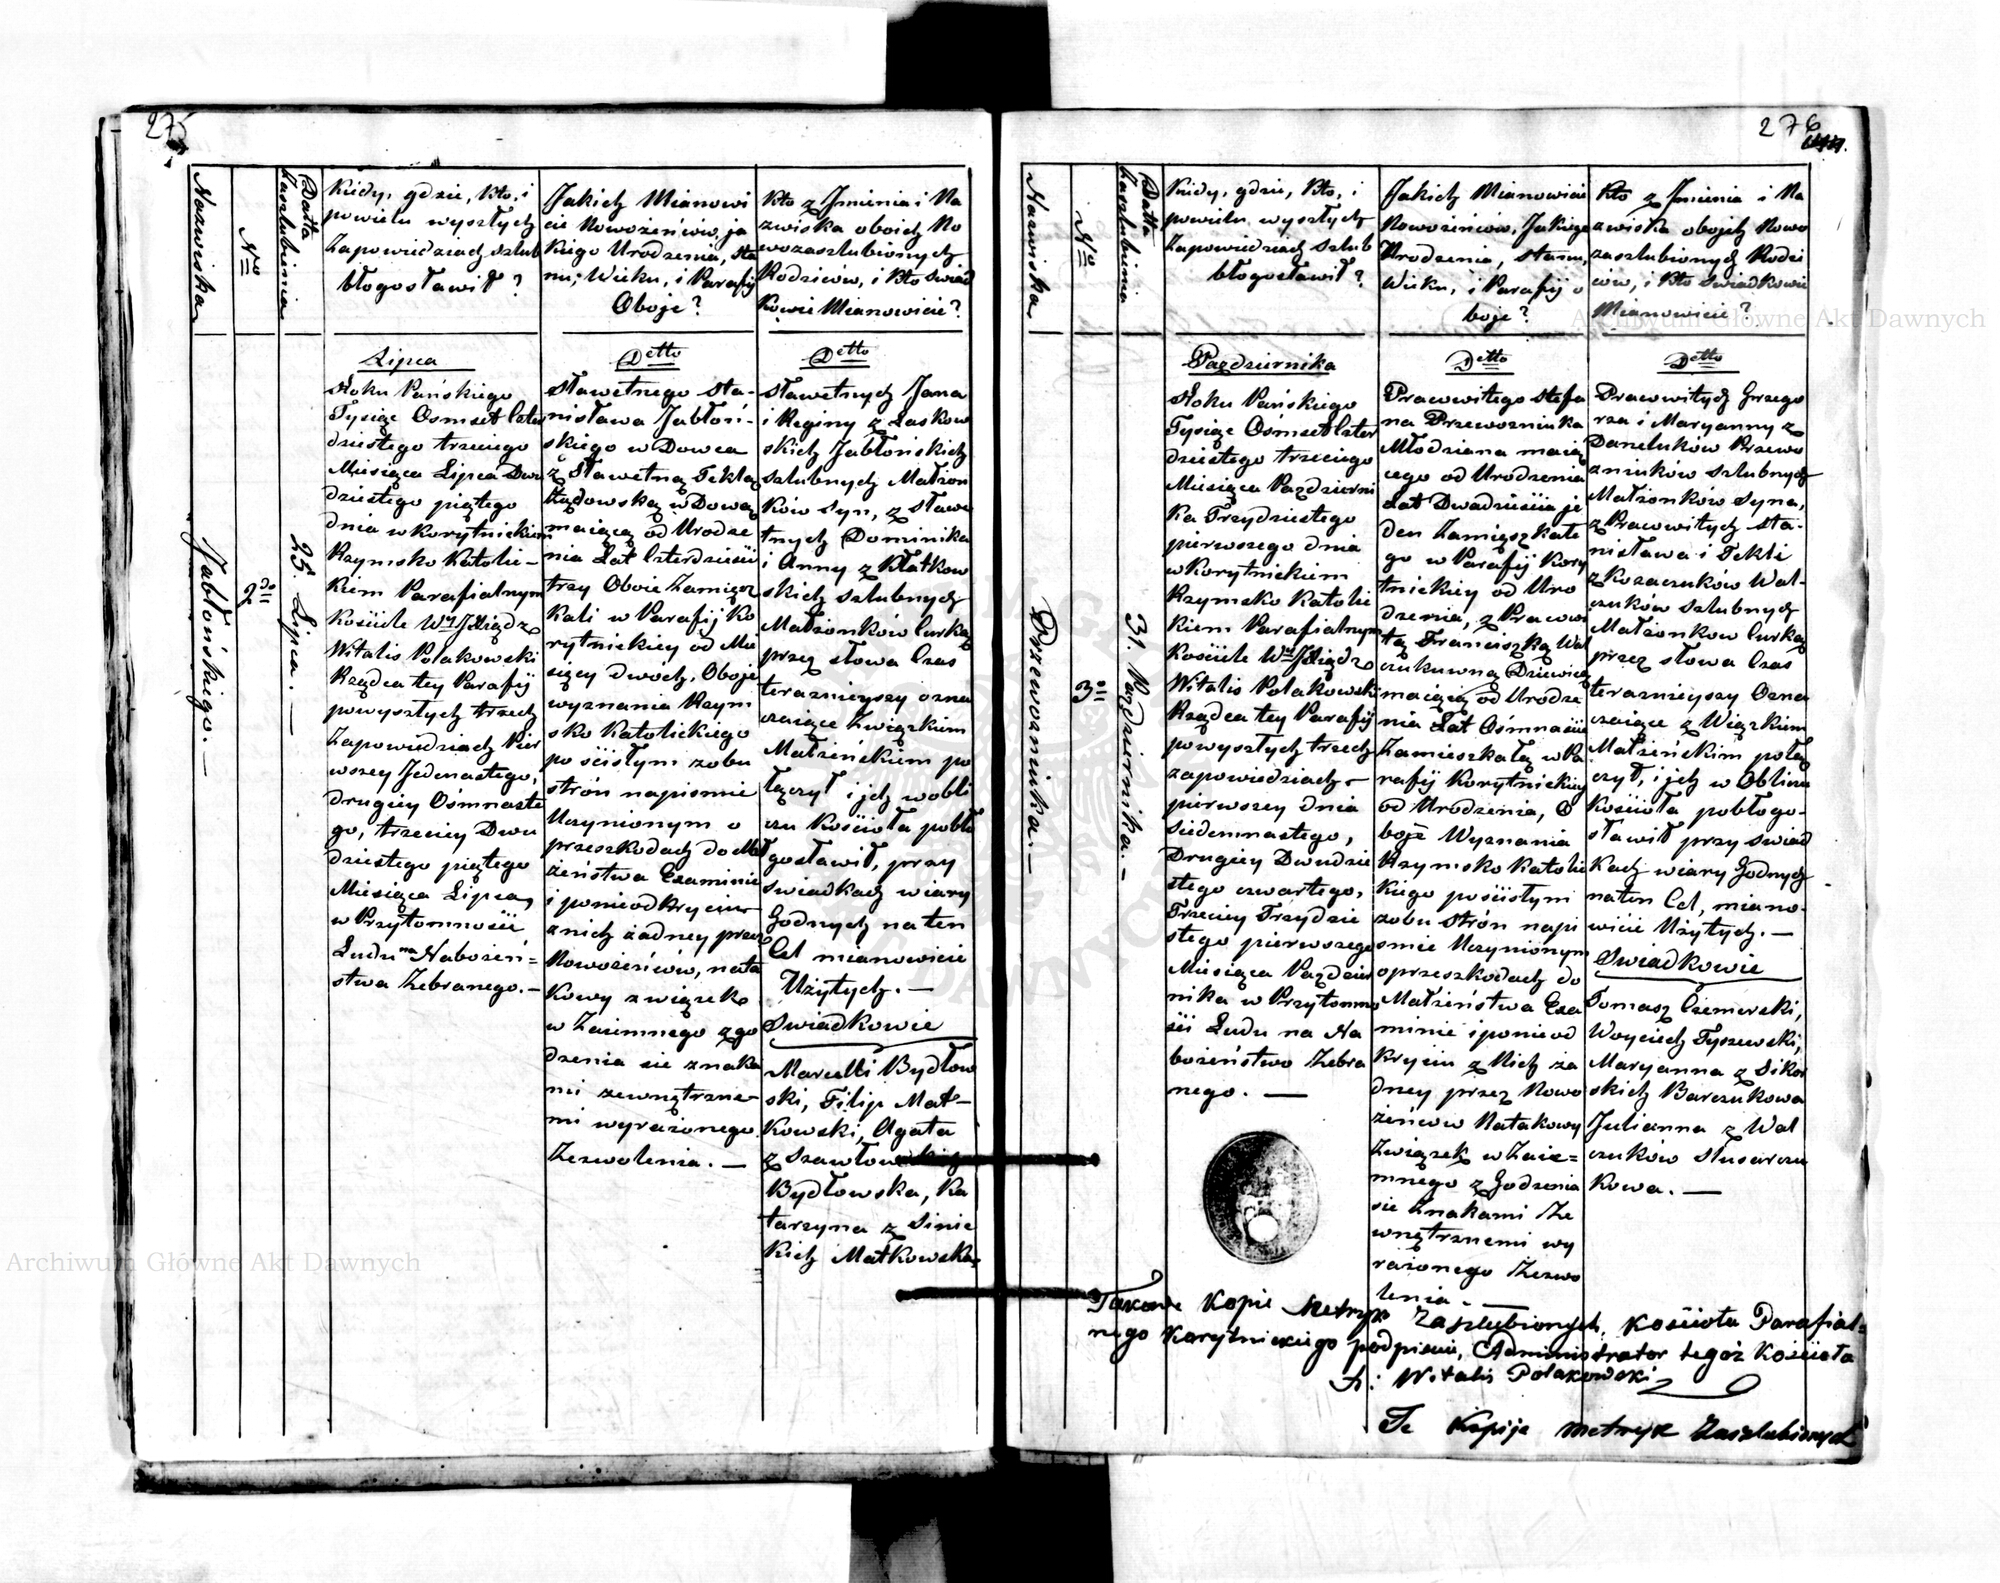 275
Nazwiska
No
Datta zaszlubienia
Kiedy, gdzie, Kto, i
powielu wyszłych
Zapowiedziach szlub
błogosławił?
Jakich Mianowi
cie Nowożeńców, ja
kiego Urodzenia, sta
nu, Wieku, i Parafij
Oboje?
Kto z Jmienia i Na
zwiska oboich No
wozaszlubionych
Rodziców, i Kto swiad
kowie Mianowicie?
Jabłońskiego. —
2do
25. Lipca. —
Lipca
Roku Pańskiego
Tysiąc Osmset Czter
dziestego trzeciego
Miesiąca Lipca Dwu
dziestego piątego
dnia w Korytnickim
Rzymsko Katolic-
kiem Parafialnym
Kościele Wny Jksiądz
Witalis Polakowski
Rządca tey Parafij
powyszłych trzech
Zapowiedziach Pier
wszey Jedenastego,
drugiey Ośmnaste
go, trzeciey Dwu
dziestego piątego
Miesiąca Lipca,
w Przytomności
Ludu na Nabożeń=
stwa Zebranego. —
Detto
Sławetnego Sta-
nisława Jabłoń-
skiego w Dowca
z Sławetną Teklą
w Dową
maiącą od Urodze
nia Lat Czterdzieści
trzy Oboie Zamiesz
kali w Parafij Ko
rytnickiey od Mie
sięcy dwóch, Oboje
wyznania Rzym
sko Katolickiego
po ścisłym zobu
strón napismie
Uczynionym o
przeszkodach do Mał
żeństwa Examinie
i ponieodkryciu
znich żadney przez
Nowożeńców, nata
kowy związek
w Zaiemnego zgo
dzenia sie znaka
mi zewnętrzne-
mi wyrażonego
Zezwolenia. —
Detto
Sławetnych Jana
i Reginy z Laskow
skich Jabłońskich
szlubnych Małżon
ków syn, z Sławe
tnych Dominika
i Anny z Kłatkow
skich szlubnych
Małżonków Curką
przez słowa Czas
teraznieyszy ozna
czaiące Związkiem
Małżeńskiem po
łączył i jch wobli
czu Kościoła pobło
gosławił, przy
swiadkach wiary
Godnych na ten
Cel mianowicie
Użytych. —
Swiadkowie
Marcelli Bydłow
ski, Filip Mał-
kowski, Agata
z
Bydłowska, Ka
tarzyna z Sinic
kich Małkowska
276
Nazwiska
No
Datta zaszlubienia
Kiedy, gdzie, Kto, i
powielu wyszłych
Zapowiedziach szlub
błogosławił?
Jakich Mianowicie
Nowożeńców, Jakiego
Urodzenia, stanu,
Wieku, i Parafij o
boje?
Kto z Jmienia i Na
zwiska obojch Nowo
zaszlubionych Rodzi
ców, i Kto swiadkowie
Mianowicie?
Przewozniuka. —
3o
31. Pazdziernika. —
Pazdziernika
Roku Pańskiego
Tysiąc Ośmset Czter
dziestego trzeciego
Miesiąca Pazdzierni
ka Trzydziestego
pierwszego dnia
w Korytnickiem
Rzymsko Katolic
kiem Parafialnym
Kościele Wny Jksiądz
Witalis Polakowski
Rządca tey Parafij
powyszłych trzech
zapowiedziach —
pierwszey dnia
Siedemnastego,
Drugiey Dwudzie
stego czwartego,
Trzeciey Trzydzie
stego pierwszego
Miesiąca Pazdzier
nika w Przytomno
ści Ludu na Na
bożeństwo Zebra
nego. —
Detto
Pracowitego Stefa
na Przewozniuka
Młodziana maią
cego od Urodzenia
Lat Dwadzieścia je
den Zamieszkałe
go w Parafij Kory
tnickiey od Uro
dzenia, z Pracowi
tą Franciszką Wal
czukuwną Dziewicą
maiącą od Urodze
nia Lat Ośmnaście
Zamieszkałą w Pa
rafij Korytnickiey
od Urodzenia, O
boje Wyznania
Rzymsko Katolic
kiego pościsłym
zobu strón napi
smie Uczynionym
oprzeszkodach do
Małżeństwa Exa
minie i ponieod
kryciu z Nich ża
dney przez Nowo
żeńców Natakowy
Związek w Zaie=
mnego z Godzenia
sie Znakami Ze
wnętrznemi wy
rażonego Zezwo
lenia. —
Detto
Pracowitych Grzego
rza i Maryanny z
Daneluków Przewo
zniuków szlubnych
Małżonkow Syna,
z Pracowitych Sta-
nisława i Tekli
z Kozaczuków Wal-
czuków szlubnych
Małżonkow Curką
przez słowa Czas
teraznieyszy Ozna
czaiące z Wiązkiem
Małżeńskim połą
czył, i jch w Obliczu
Kościoła pobłogo-
sławił przy swiad
kach wiary Godnych
naten Cel, miano-
wicie Użytych. —
Swiadkowie
Tomasz Czemerski,
Woyciech Tyszewski,
Maryanna z Sikor
skich Barczukowa
Julianna z Wal
czuków Slusarczu
kowa. —
Takowe Kopie Metryk Zaszlubionych, Kościoła Parafial=
nego Korytnickiego podpisuie, Administrator tegoż Kościoła
X: Witalis Polakowski
Te Kopije Metryk Zaszlubionych
Archiwum Główne Akt Dawnych
Archiwum Główne Akt Dawnych